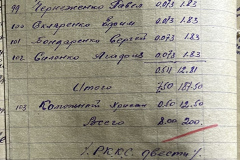 99 Черкеженко Павел 0.073 1.83
100 Скляренко Ефим 0.073 1.83
101 Бондаренко Сергей 0.073 1.83
102 Силенко Агафия 0.073 1.83
0.511 12.81
Итого 7.50 187.50
103 0.50 12.50
Всего 8.00 200.
/РККС двести/